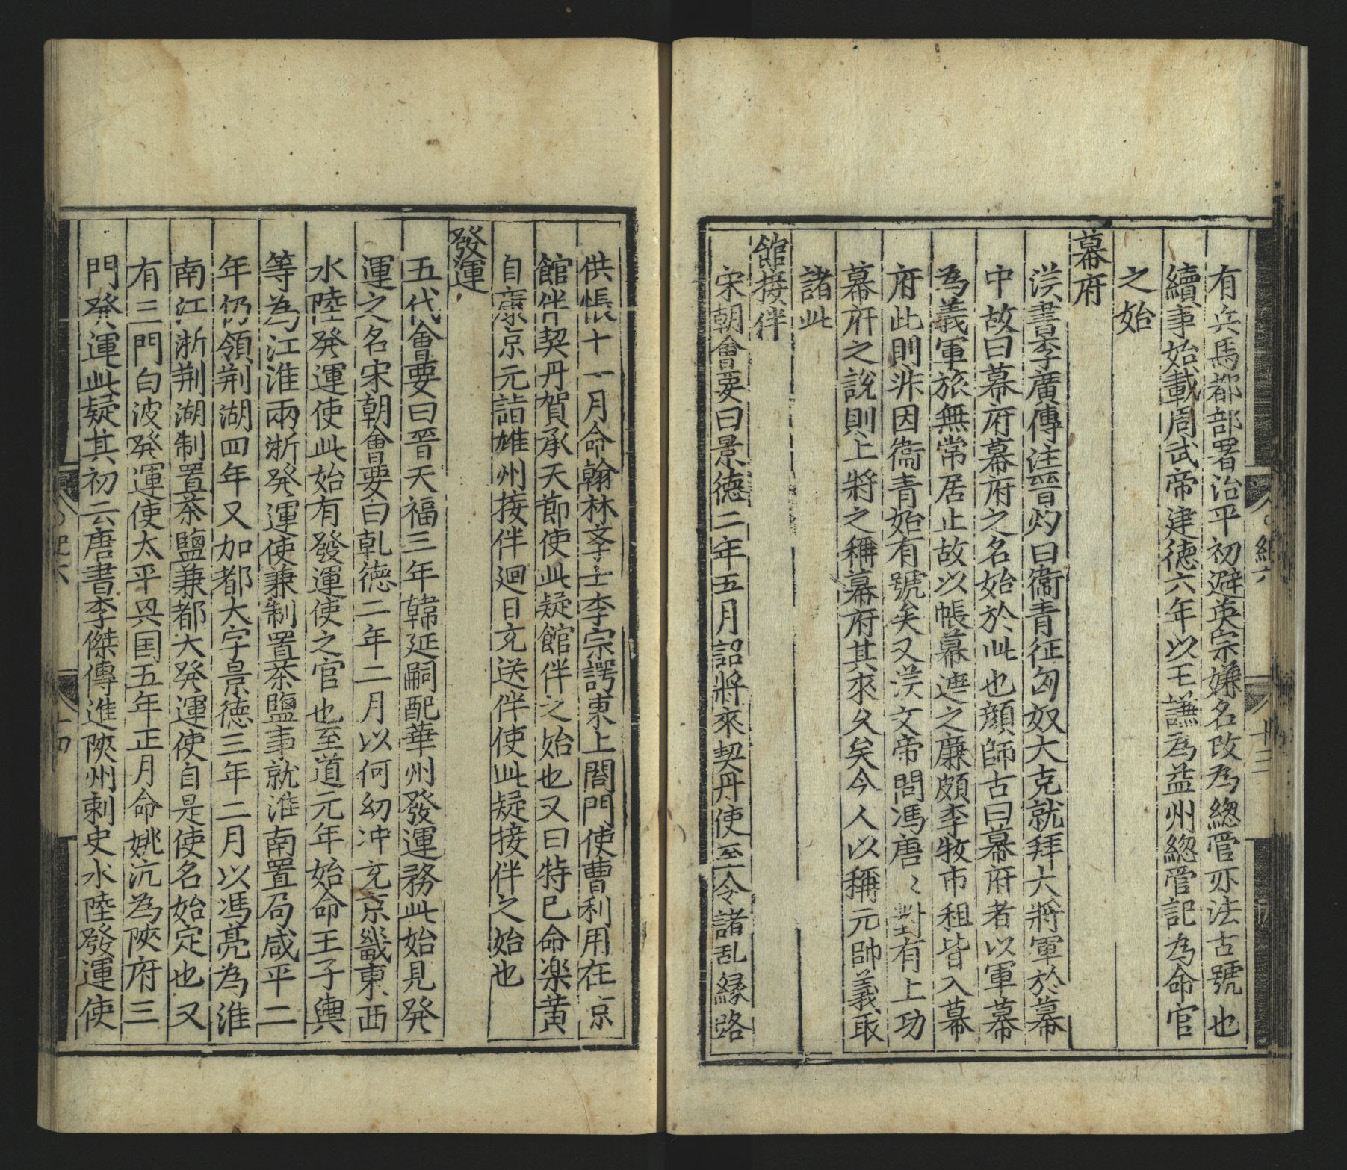 有兵馬都部署治平初避英宗嫌名改為緫管亦法古號也
續事始載周武帝建徳六年以王謙為益州緫管記為命官
之始
幕府
漢書李廣傳注晉灼曰衞青征匈奴大克就拜大將軍於幕
中故曰幕府幕府之名始於此也顔師古曰幕府者以軍幕
為義軍旅無常居止故以帳幕遮之廉頗李牧市租皆入幕
府此則非因衞青始有號矣又漢文帝問馮唐〻對有上功
幕府之說則上將之稱幕府其來久矣今人以稱元帥義取
諸此
館接伴
宋朝會要曰景徳二年五月詔將來契丹使至令諸乱縁路
供帳十一月命翰林李士李宗諤東上閤門使曹利用在京
館伴契丹賀承天節使此疑館伴之始也又曰特巳命梁黄
自康京元詣雄州接伴迴日充送伴使此疑接伴之始也
發運
五代會要曰晉天福三年韓延嗣配華州發運務此始見発
運之名宋朝會要曰乹徳二年二月以何幼冲充京畿東西
水陸発運使此始有發運使之官也至道元年始命王子輿
等為江淮兩浙発運使兼制置茶鹽事就淮南置局咸平二
年仍領荆湖四年又加都大字景徳三年二月以馮亮為淮
南江浙荆湖制置茶鹽兼都大発運使自是使名始定也又
有三門白波発運使太平㒷国五年正月命姚沆為陝府三
門発運此疑其初云唐書李傑傳進陝州刺史水陸發運使